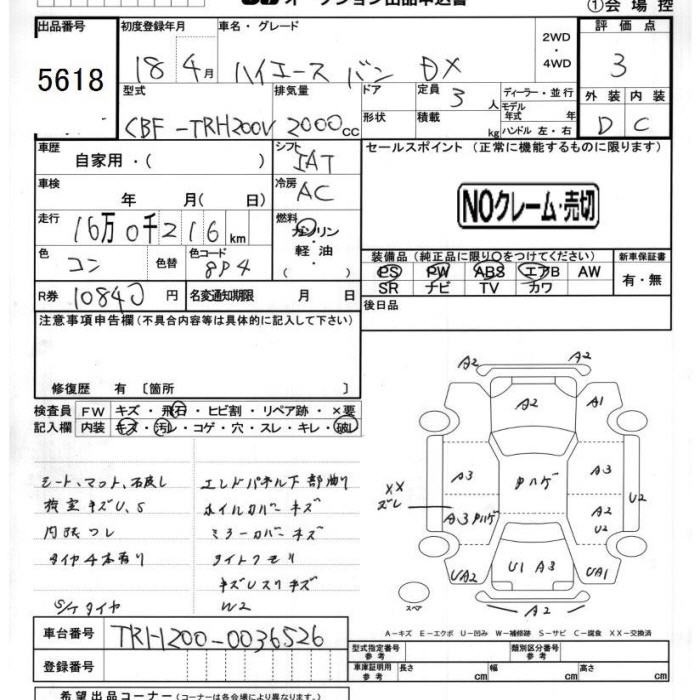 オークション出品申込書
①会場控
出品番号
5618
初度登録年月
18 4月
車名・グレード
ハイエース バン DX
2WD
・
4WD
評価点
3
型式
CBF-TRH200V
排気量
2000cc
ドア
定員 3人
形状
積載 kg
ディーラー・並行
モデル年式 年
ハンドル 左・右
外装 内装
D C
車歴
自家用・( )
シフト
IAT
セールスポイント(正常に機能するものに限ります)
車検
年 月( 日)
冷房
AC
NOクレーム・売切
走行
16万0千216km
燃料
ガソリン
軽油
・
( )
色
コン
色替
色コード
8P4
装備品(純正品に限り○をつけてください)
新車保証書
PS PW ABS エアB AW
SR ナビ TV カワ
有・無
R券 10840円
名変通知期限 月 日
後日品
注意事項申告欄(不具合内容等は具体的に記入して下さい)
修復歴 有〔箇所 〕
検査員記入欄
FW キズ・飛石・ヒビ割・リペア跡・×要
内装 キズ・汚レ・コゲ・穴・スレ・キレ・破レ
シート、マット、石灰し
検室キズU、S
内張つレ
タイヤ4本有り
S/Tタイヤ
エンドパネル下部曲り
ホイルカバーキズ
ミラーカバーキズ
ライトクモリ
キズUスリキズ
W2
A2 A2
A2 A1
A3 中ハゲ A3
XX
ズレ
U2
A3 中ハゲ
A2
U2
UA2 U1 A3 UA1
A2
スペア
A-キズ E-エクボ U-凹み W-補修跡 S-サビ C-腐食 XX-交換済
車台番号 TRH200-0036526
登録番号
型式指定番号
参考
類別区分番号
参考
車庫証明用
参考
長さ cm
幅 cm
高さ cm
希望出品コーナー(コーナーは各会場で異なります)